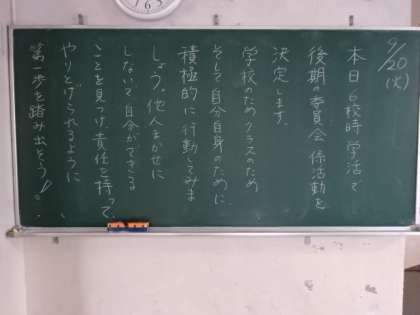 9/20
(火)
本日6校時 学活で
後期の委員会 係活動を
決定します。
学校のため クラスのため
そして自分自身のために
積極的に行動してみま
しょう。他人まかせに
しないで自分ができる
ことを見つけ、責任を持って、
やりとげられるように
第一歩を踏み出そう!!。